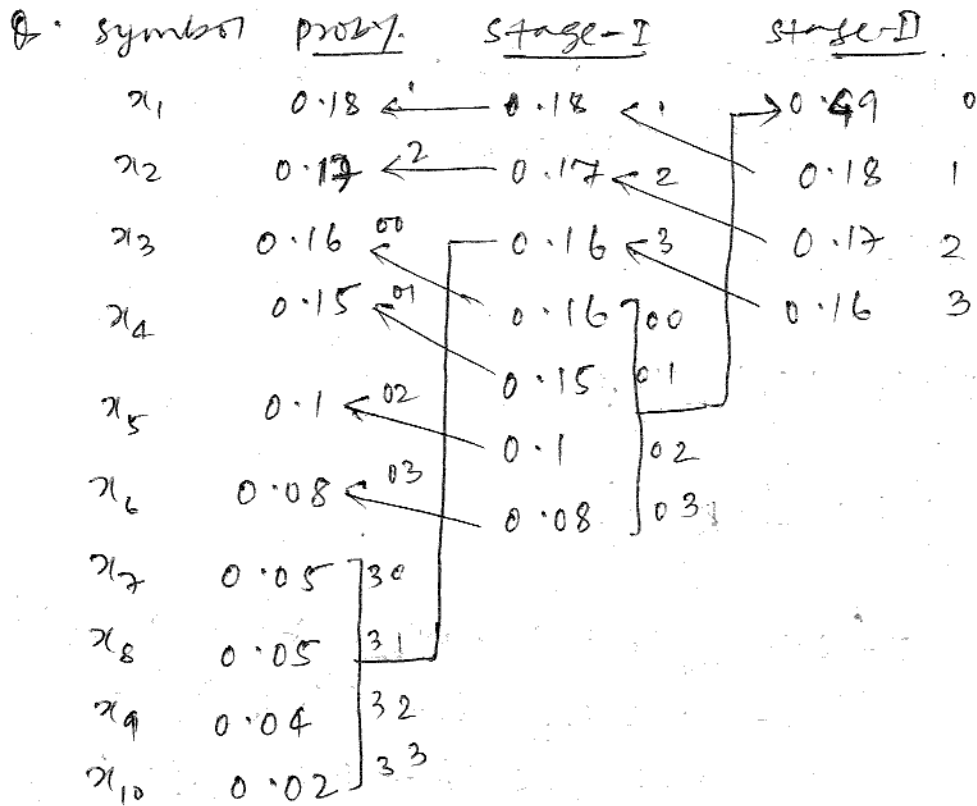 Q. symbol proby. Stage-I Stage-II
x1 0.18 1 0.18 1 0.49 0
x2 0.17 2 0.17 2 0.18 1
x3 0.16 00 0.16 3 0.17 2
x4 0.15 01 0.16 00 0.16 3
0.15 01
x5 0.1 02 0.1 02
x6 0.08 03 0.08 03
x7 0.05 30
x8 0.05 31
x9 0.04 32
x10 0.02 33